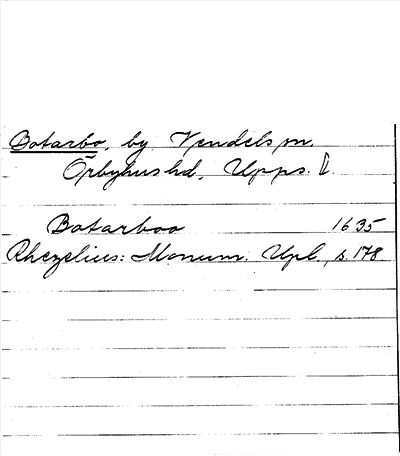 Botarbo, by Vendels sn.
Örbyhus hd, Upps. l.
Botarboo 1635
Rhezelius: Monum. Upl., s. 178